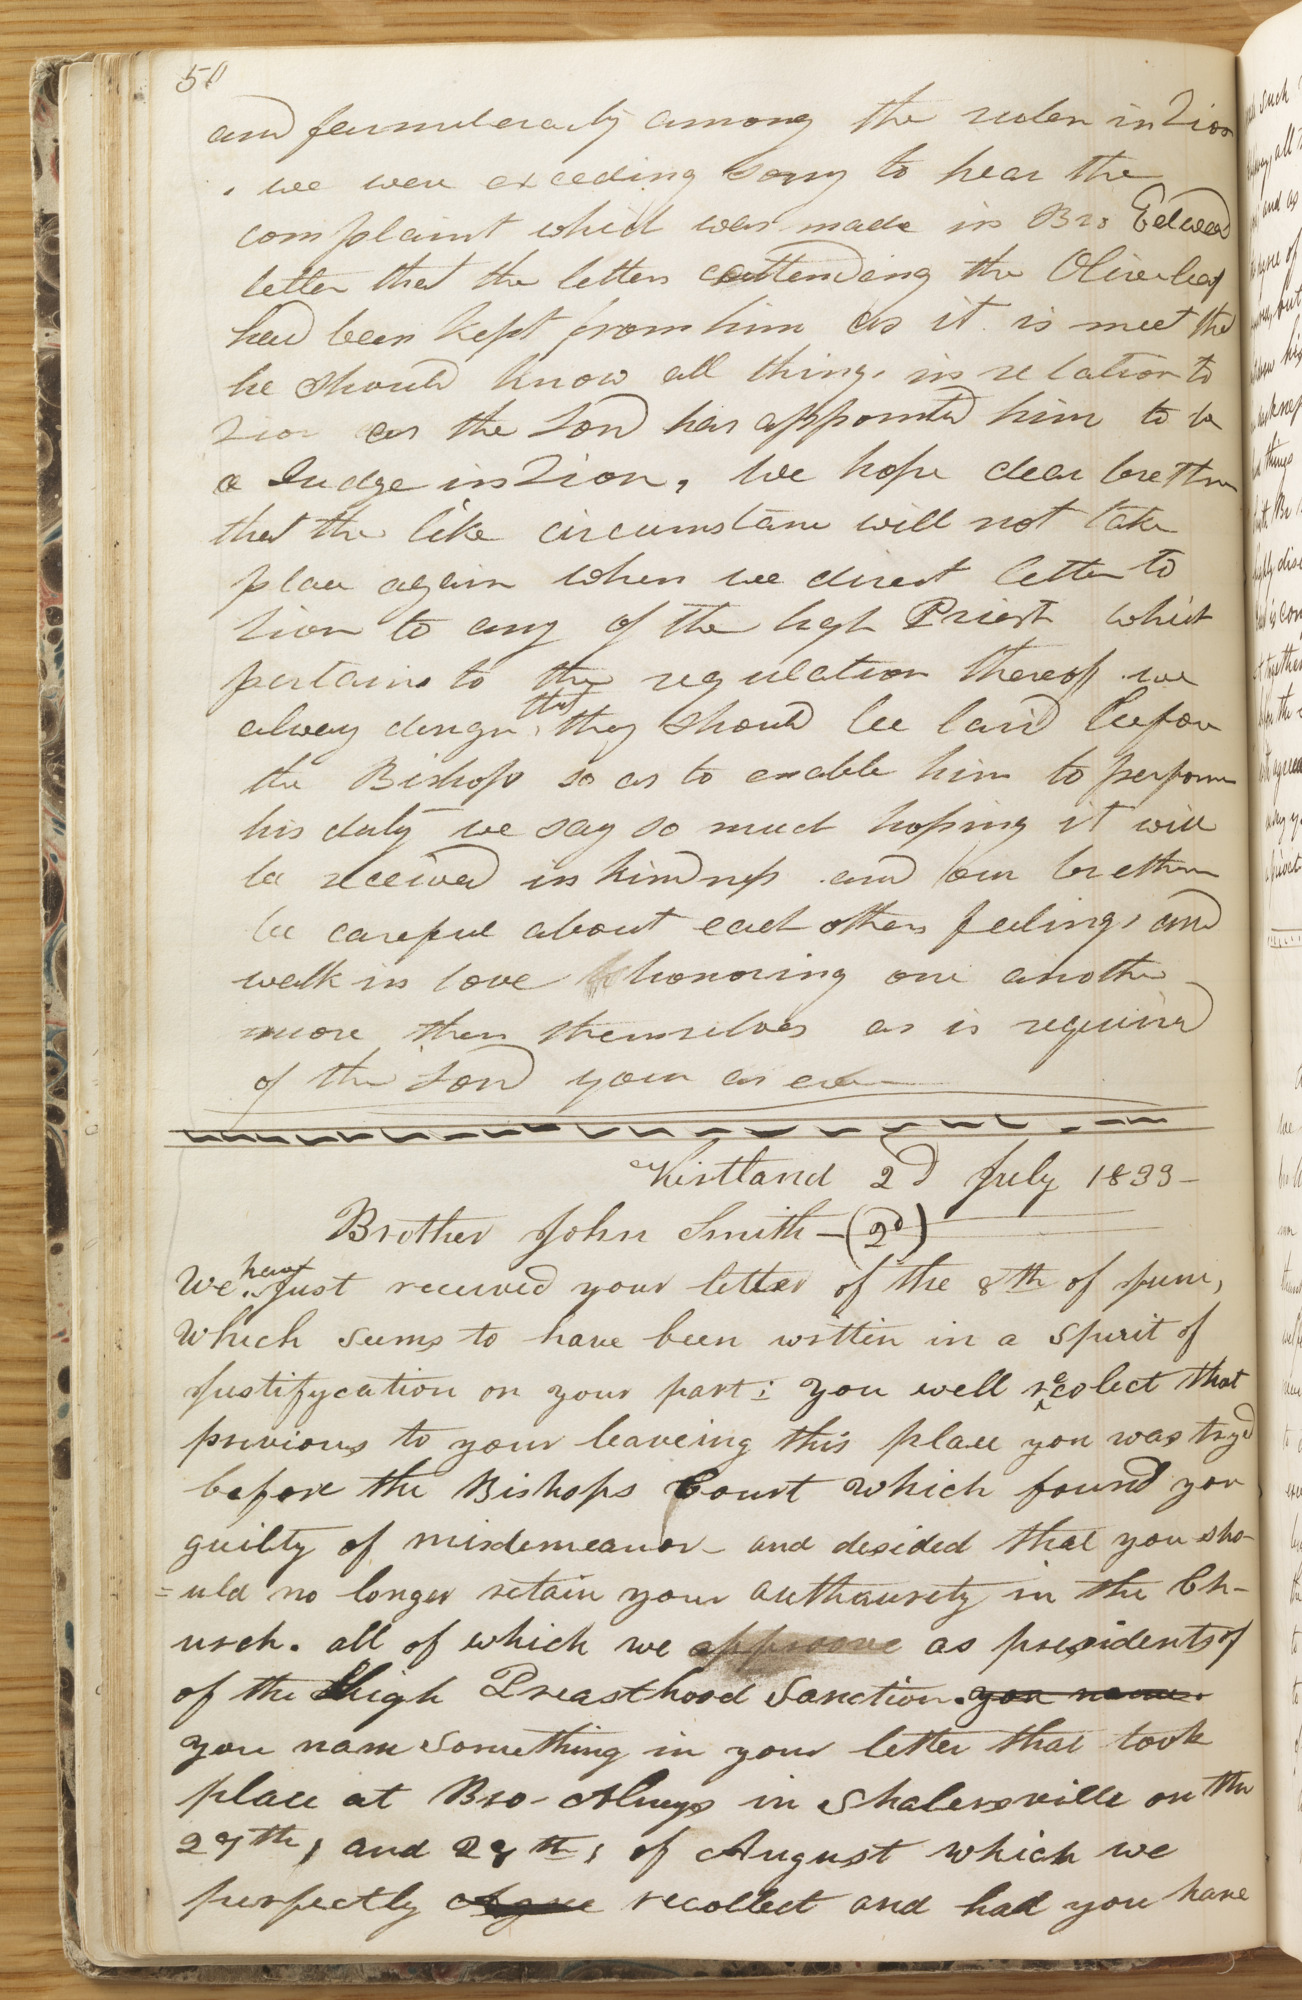 50
and fammeleraly among the rulers in Zion
. we were exceeding sorry to hear the
complaint which was made in Bro Edward
letter that the letters attending the Olive leaf
had been kept from him as it is meet tha
he should know all things in relation to
Zion as the Lord has appointed him to be
a Judge in Zion, We hope dear brethren
that the like circumstane will not take
place again when we direct letters to
Zion to any of the high Priest which
pertains to the regulation thereof we
alway design that they should be laid before
the Bishop so as to enable him to perform
his duty we say so much hoping it will
be received in kindness and our brethren
be careful about each others feelings and
walk in love honoring one another
more then themselves as is required
of the Lord yours as ever
Kirtland 2d July 1833—
Brother John Smith—(2d)
We have Just received your letter of the 8th of June,
Which seems to have been written in a spirit of
Justifycation on your part: you well recolect that
previous to your leaveing this place you was tryd
before the Bishops Court which found you
guilty of misdemeanor— and desided that you sho-
=uld no longer retain your authaurety in the Ch-
urch. all of which we approove as presidents of
of the High Preasthood Sanction. you name.
you name something in your letter that took
place at Bro- Alneys in Shalersville on the
27th, and 28th, of August which we
perfectly recollect and had you have